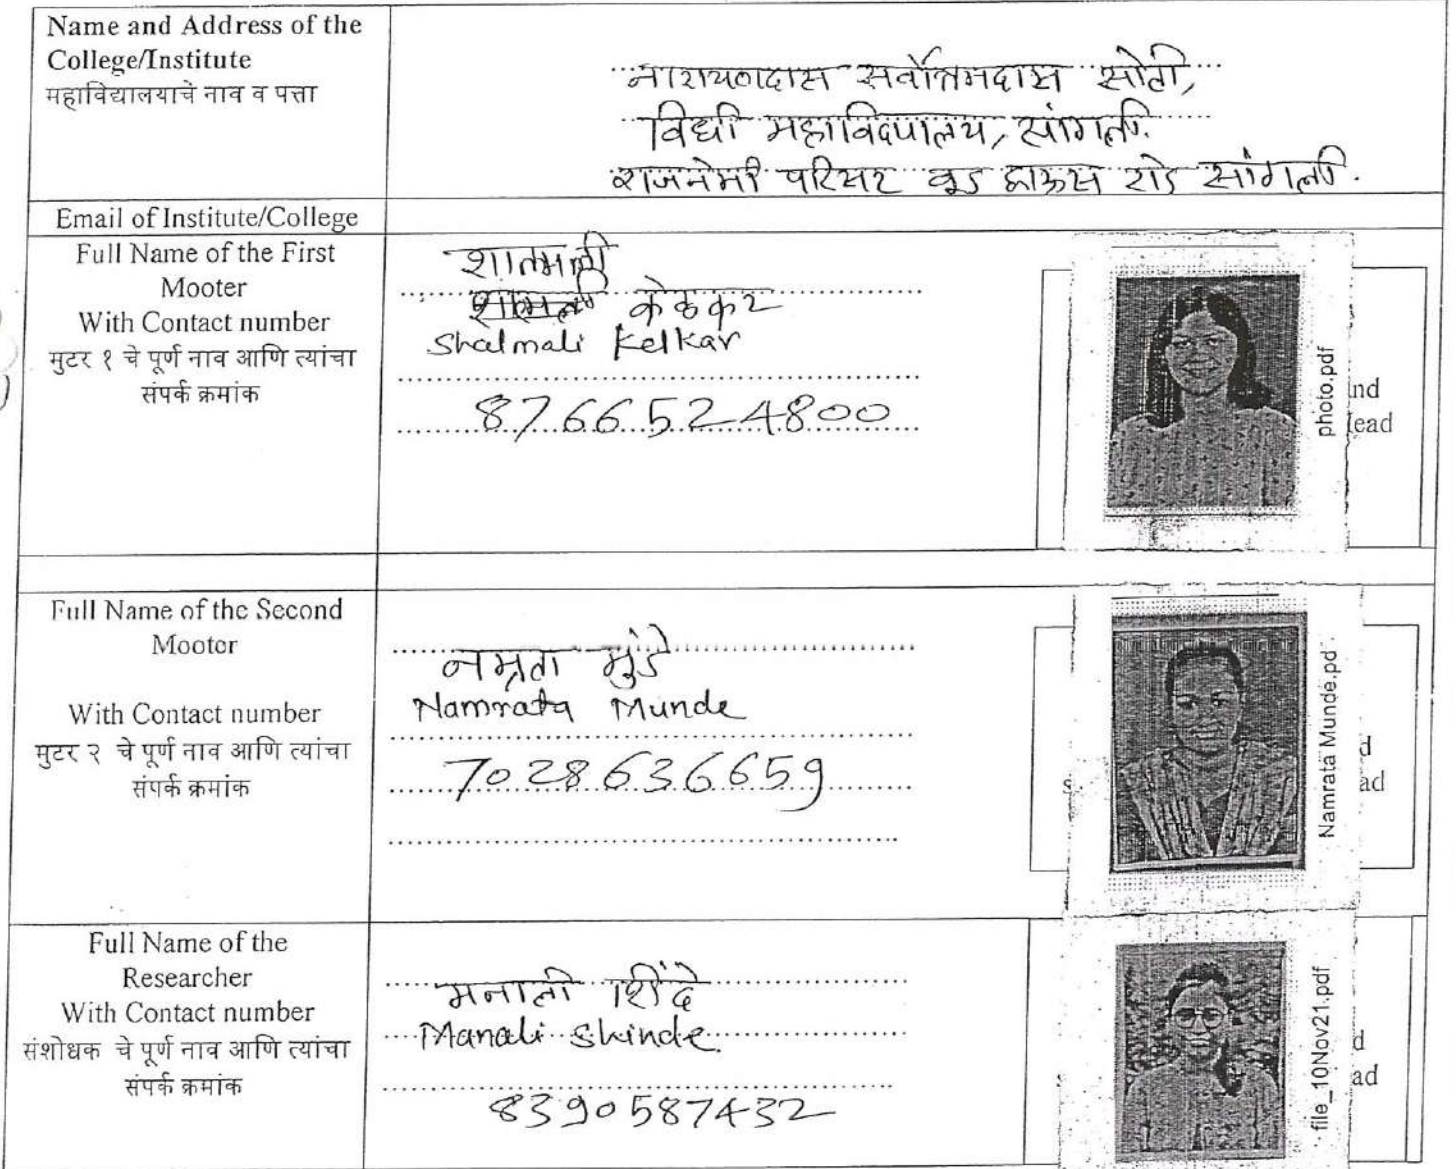 Name and Address of the
College/Institute
महाविद्यालयाचे नाव व पत्ता
नारायणदास सर्वोत्तमदास सोटी,
विधी महाविद्यालय, सांगली.
राजनेमी परिसर वूड हाऊस रोड सांगली.
Email of Institute/College
Full Name of the First
Mooter
With Contact number
मुटर १ चे पूर्ण नाव आणि त्यांचा
संपर्क क्रमांक
शाल्मली
केळकर
Shalmali Kelkar
8766524800
photo.pdf
nd
ead
Full Name of the Second
Mooter
With Contact number
मुटर २ चे पूर्ण नाव आणि त्यांचा
संपर्क क्रमांक
नम्रता मुंडे
Namrata Munde
7028636659
Namrata Munde.pd
d
ad
Full Name of the
Researcher
With Contact number
संशोधक चे पूर्ण नाव आणि त्यांचा
संपर्क क्रमांक
मनाली शिंदे
Manali Shinde
8390587432
file_10Nov21.pdf
d
ad